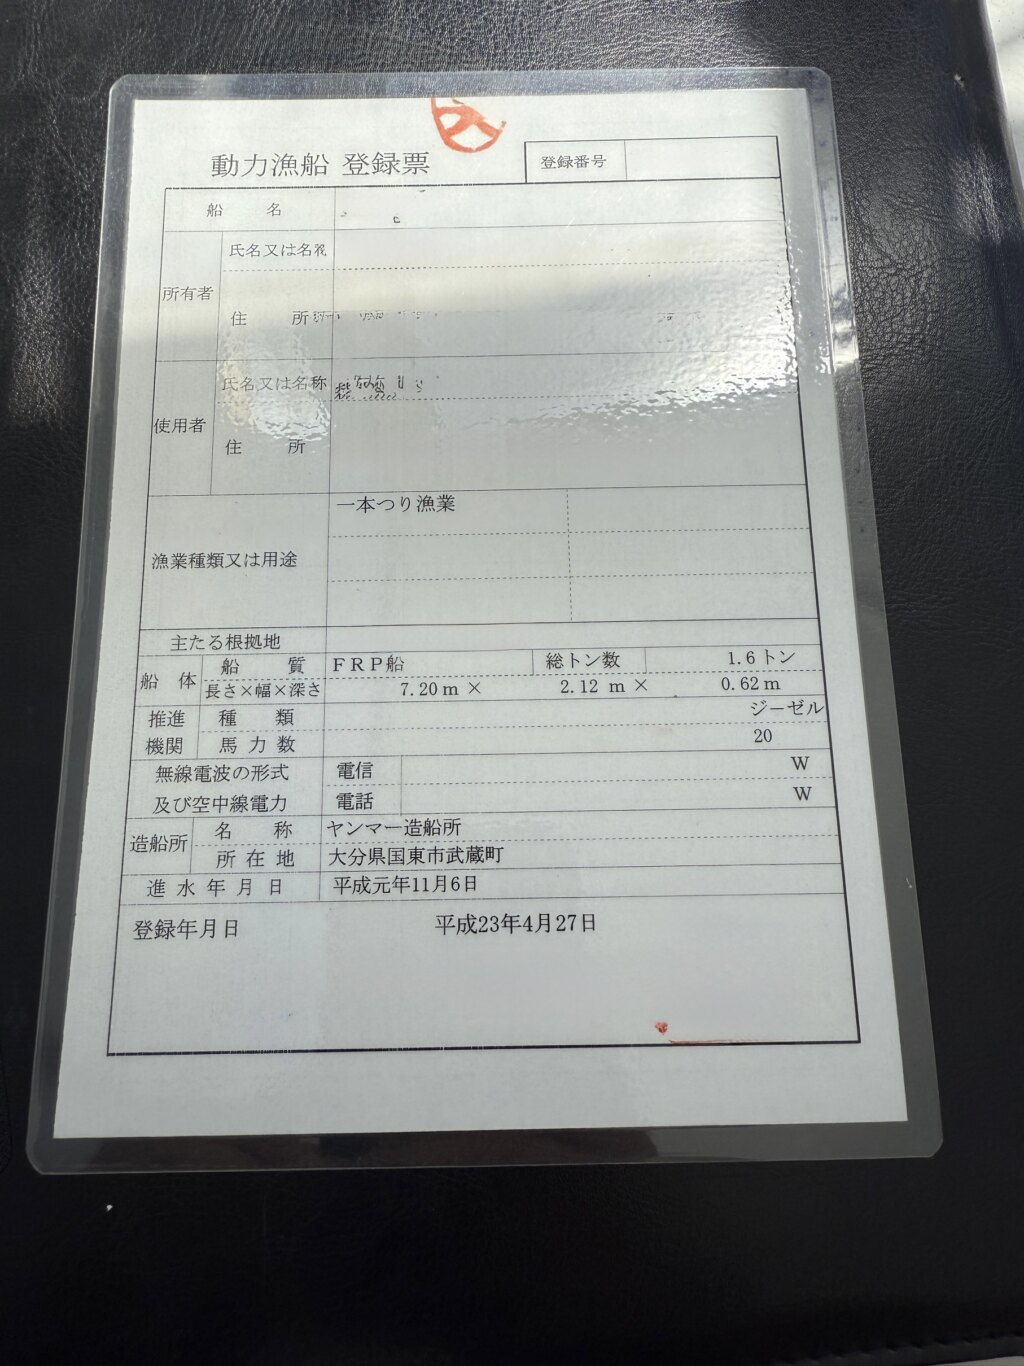 動力漁船 登録票
登録番号
船 名
所有者
氏名又は名称
住 所
使用者
氏名又は名称
住 所
漁業種類又は用途
一本つり漁業
主たる根拠地
船 体
船 質 FRP船 総トン数 1.6トン
長さ×幅×深さ 7.20m× 2.12 m× 0.62m
推進機関
種 類 ジーゼル
馬 力 数 20
無線電波の形式 電信 W
及び空中線電力 電話 W
造船所
名 称 ヤンマー造船所
所 在 地 大分県国東市武蔵町
進 水 年 月 日 平成元年11月6日
登録年月日 平成23年4月27日